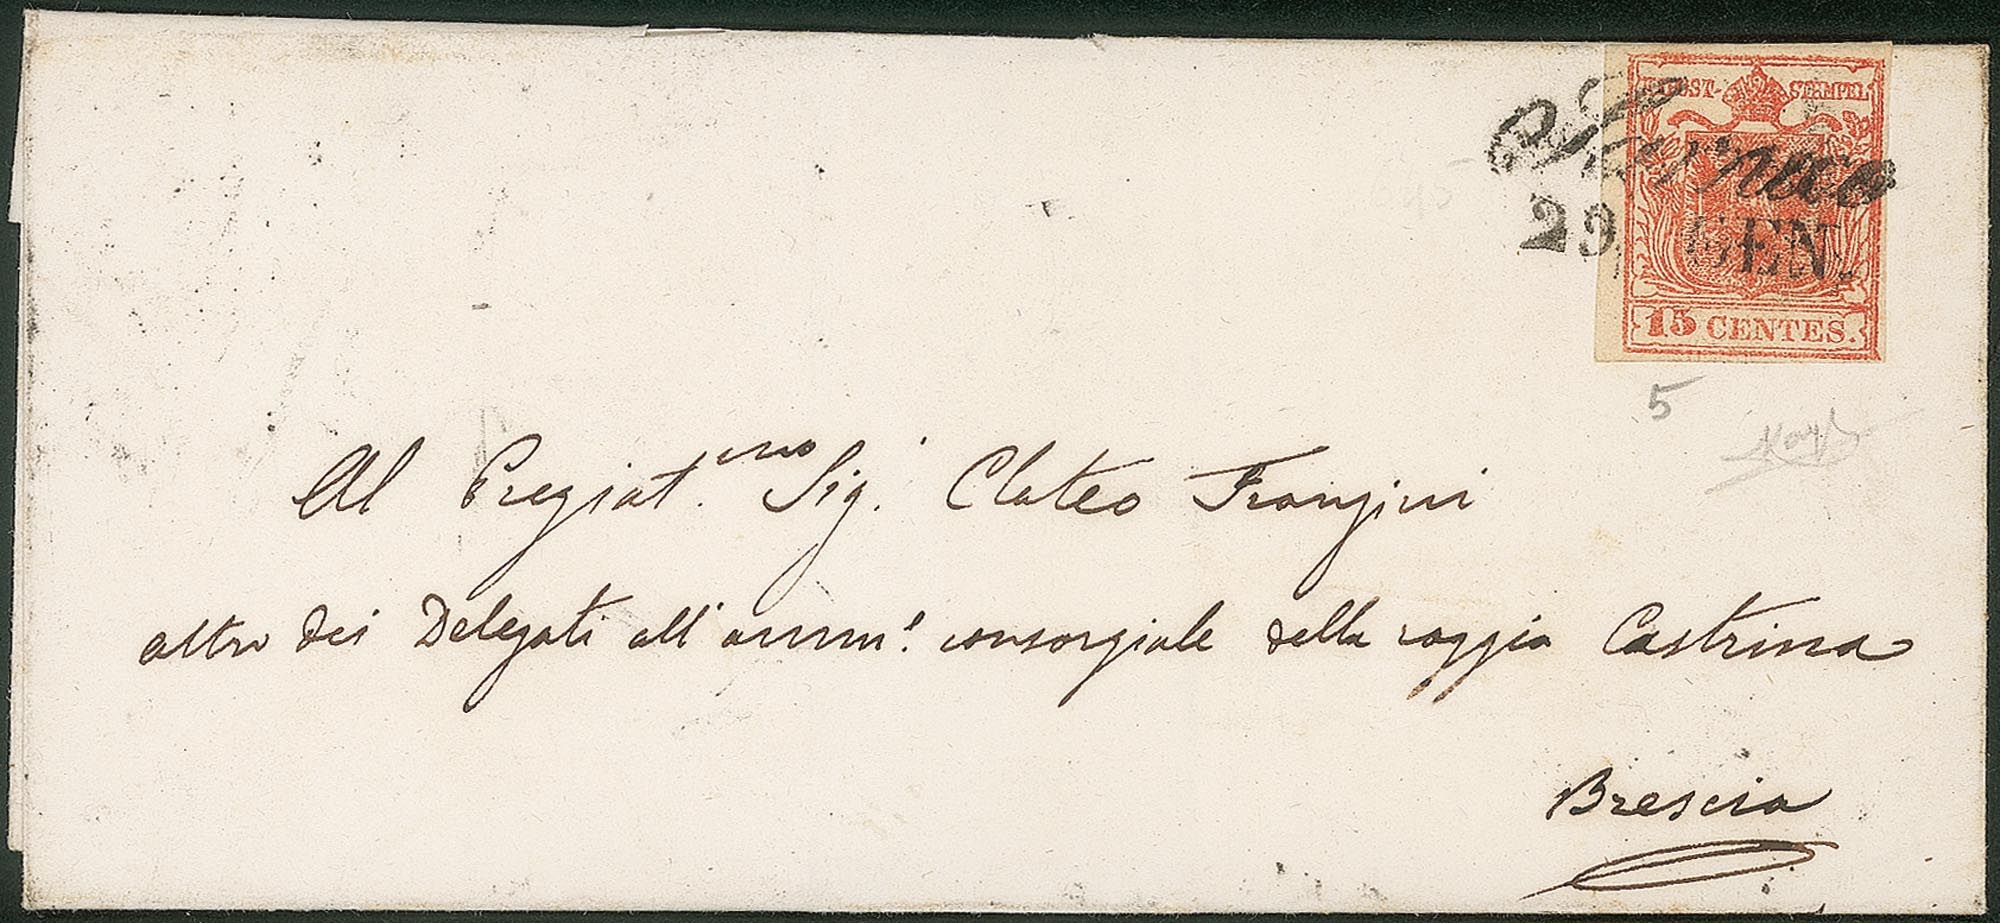 KKPOST-STEMPEL
Sarnico
29 GEN.
15 CENTES.
5
Al Pregiat.mo Sig.r Clateo Franzini
altro dei Delegati all' amm.e consorziale della roggia Castrina
Brescia